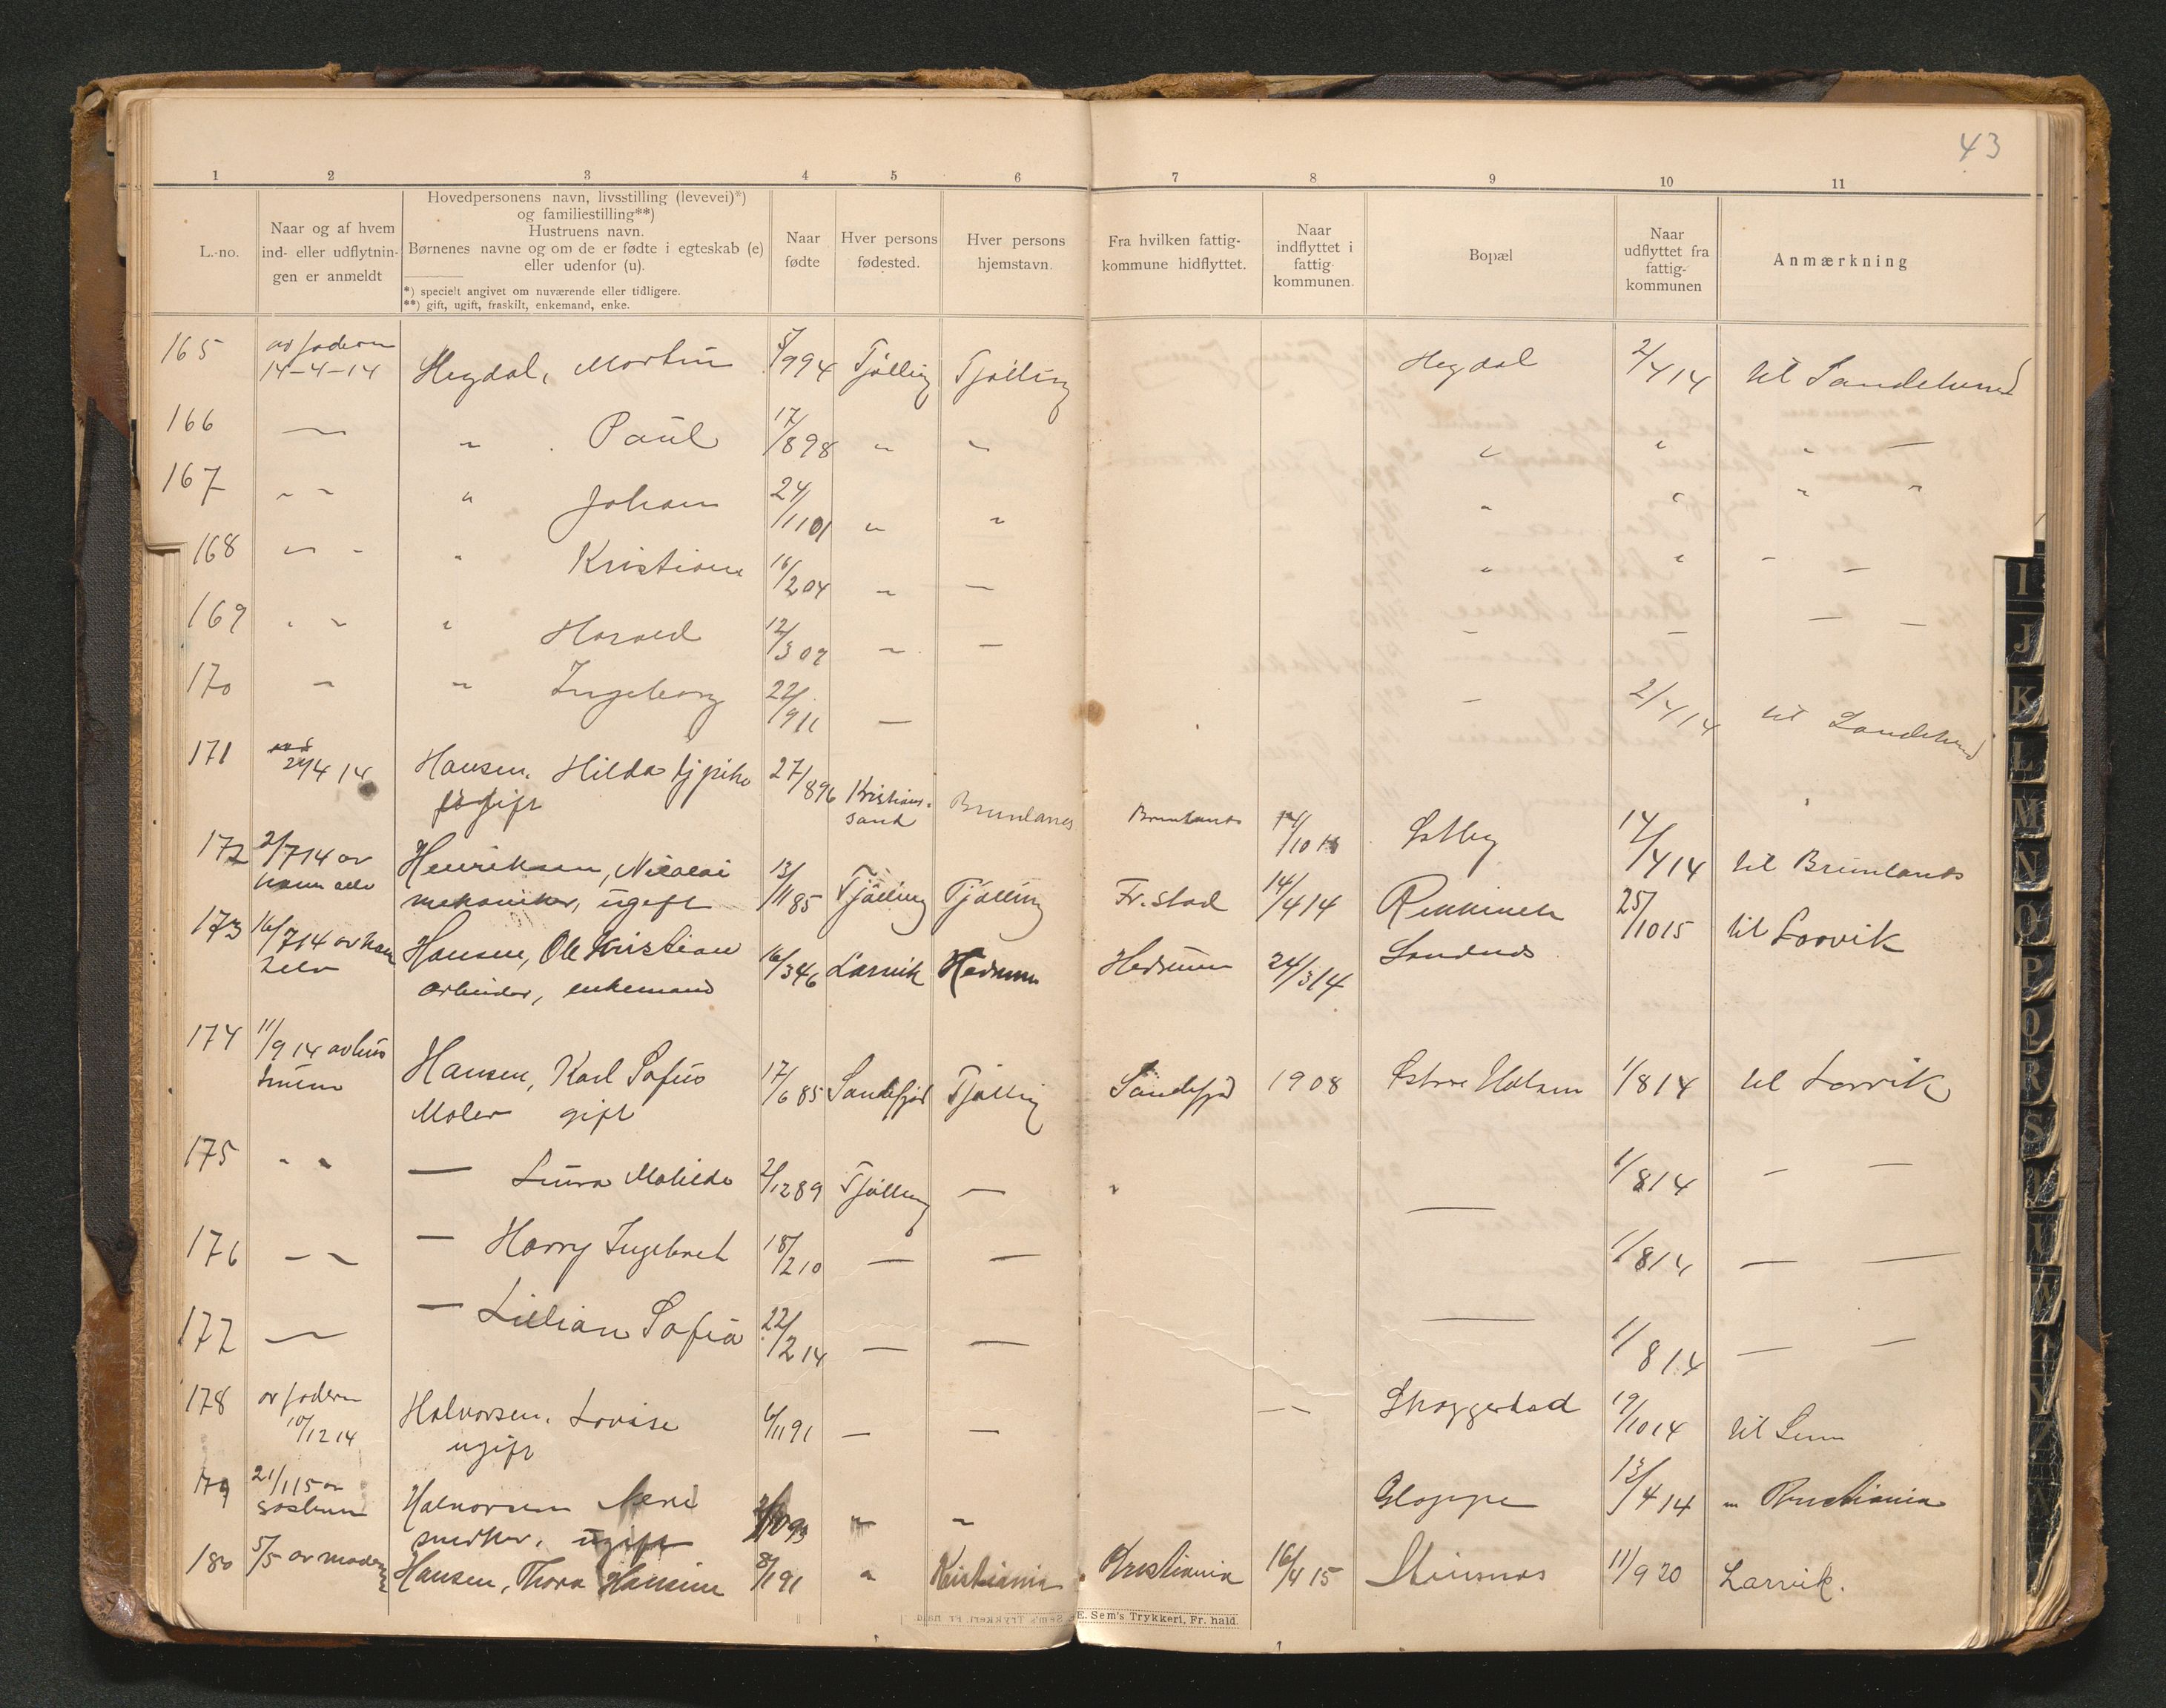 43
1 2 3 4 5 6 7 8 9 10 11
L.-no.
Naar og af hvem
ind- eller udflytnin-
gen er anmeldt
Hovedpersonens navn, livsstilling (levevei)*)
og familiestilling**)
Hustruens navn.
Børnenes navne og om de er fødte i egteskab (e)
eller udenfor (u).
*) specielt angivet om nuværende eller tidligere.
**) gift, ugift, fraskilt, enkemand, enke.
Naar
fødte
Hver persons
fødested.
Hver persons
hjemstavn.
Fra hvilken fattig-
kommune hidflyttet.
Naar
indflyttet i
fattig-
kommunen.
Bopæl
Naar
udflyttet fra
fattig-
kommunen
Anmærkning
165 av faderen 14-4-14 Hegdal, Martin 5/9 94 Tjølling Tjølling Hegdal 2/4 14 til Sandeherred
166 — " Paul 17/8 98 " " " " " —
167 " " " Johan 24/1 01 " " " " " "
168 " " " Kristian 16/2 04 " — " " — —
169 " " " Harald 12/3 09 " — — — — —
170 " " Ingeborg 22/9 11 — — 2/4 14 til Sandeherred
171 24/4 14 Hansen, Hilda tjpike 27/8 96 Kristian- Brunlanes Brunlanes Østby 14/4 14 til Brunlanes
ugift sand
172 2/7 14 av Henriksen, Nicolai 13/11 85 Tjølling Tjølling Fr.stad 14/4 14 25/10 15 til Larvik
ham selv mekaniker, ugift
173 16/7 14 av ham Hansen, Ole Kristian 16/3 46 Larvik Hedrum Hedrum 24/3 14 Sandnes
selv arbeider, enkemand
174 11/9 14 av hus Hansen, Karl Sofus 17/6 85 Sandefjord Tjølling Sandefjord 1908 Østre Halsen 1/8 14 til Larvik
truen Maler gift
175 " " — Laura Matilde 2/12 89 Tjølling — " — 1/8 14 — —
176 — " — Harry Ingebret 18/2 10 — — 1/8 14 — —
177 — — Lillian Sofia 22/2 14 — — — 1/8 14 — —
178 av faderen Halvorsen, Lovise 6/11 91 — — — Skaggestad 19/10 14 til Sem
10/12 14 ugift
179 21/1 15 av Halvorsen " " Gloppe 13/4 14 " Kristiania
søsteren snedker, ugift
180 5/5 av moderen Hansen, Thora Hansine 8/1 91 " Kristiania Kristiania 16/4 15 11/9 20 Larvik.
E. Sem's Trykkeri, Fr. hald.
I
J
K
L
M
N
O
P
Q
R
S
T
U
W
Y
Z